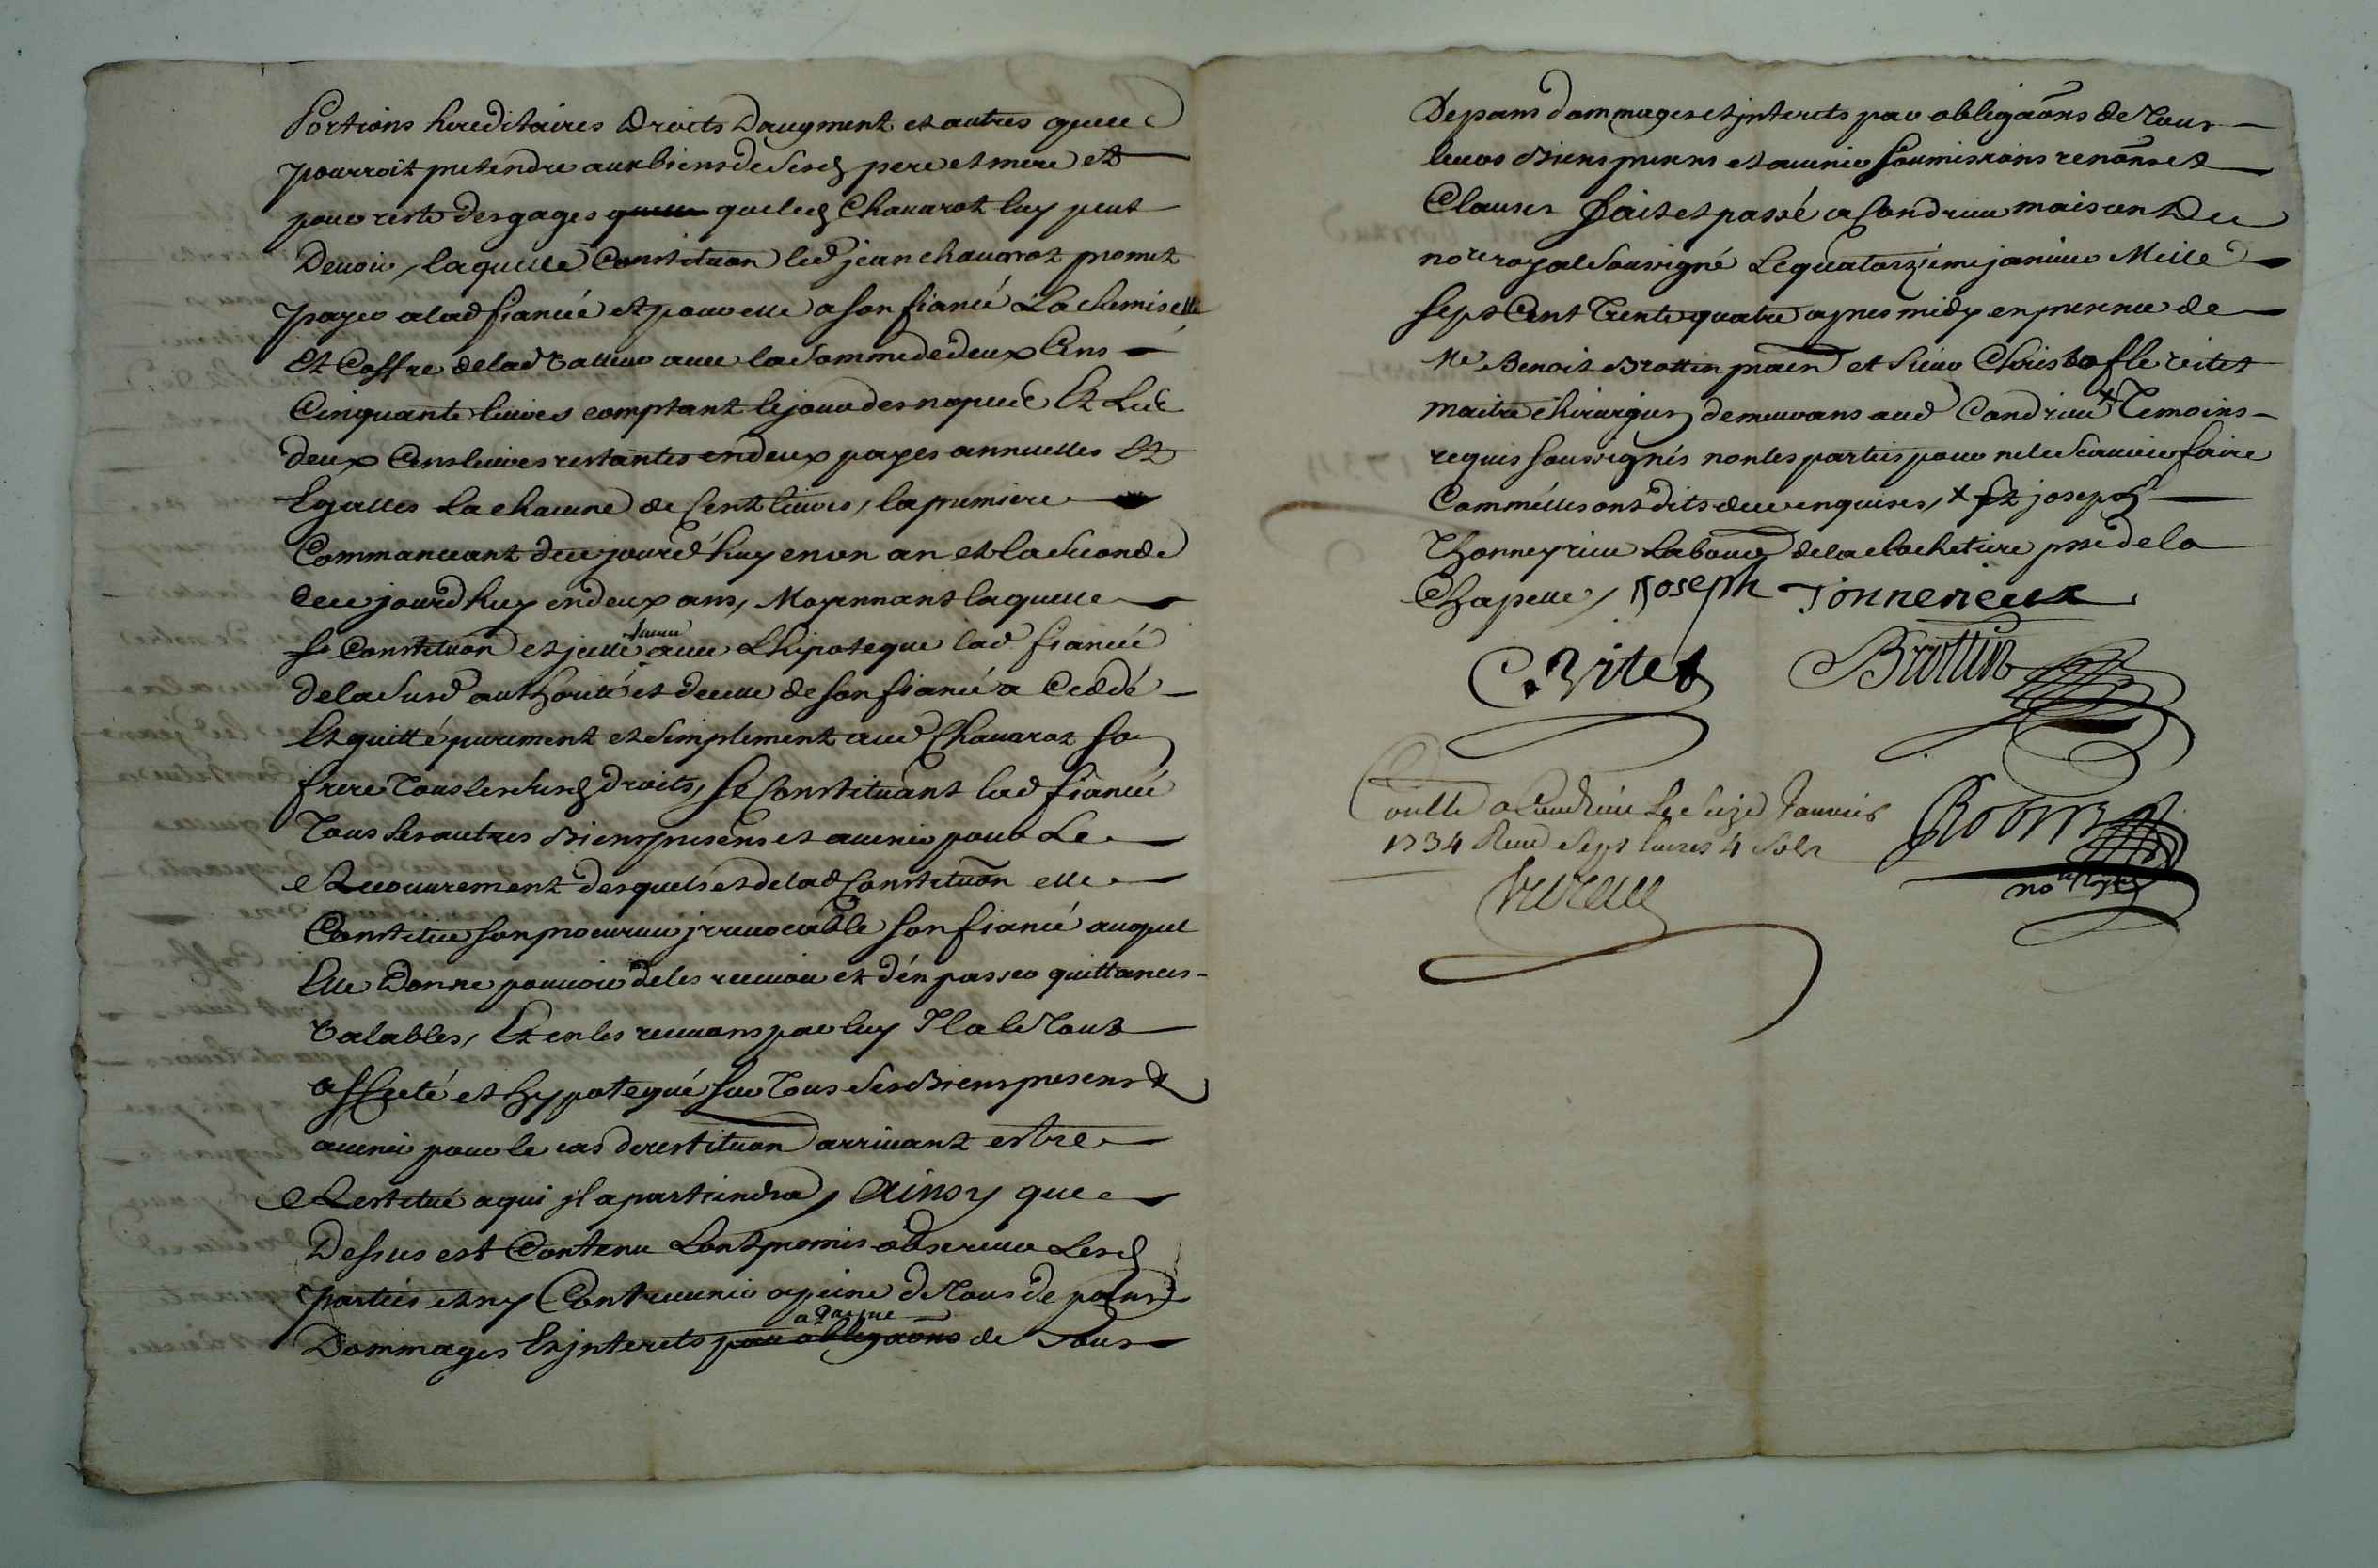 Portions hereditaires Droits Daugment et autres quelle
pourroit pretendre aux biens de sesd pere et mere et
pour reste des gages que led Chavarot luy peut
Devoir, laquelle Constituon led jean chavarot promet
payer a lad fiancée et pour elle a son fiancé La chemiselle
Et Coffre delad valleur avec la somme de deux Cens
Cinquante livres comptant le jour des nopces Et Les
deux Cens livres restantes en deux payes annuelles Et
Egalles La chacune de Cent livres, la premiere
Commanceant de ce jourd'huy en un an et la seconde
de ce jourdhuy en deux ans, Moyennant laquelle
Constituon et jcelle avec Lhipoteque lad fiancée
de la susd authorité et de celle de son fiancé a Ceddé
Et quitté purement et simplement aud Chavarot son
frere Tous les susd droits, se Constituant lad fiancée
Tous ses autres Biens presens et avenir pour Le
Recouvrement desquels et de lad Constituon elle
Constitue son procureur jrrevocable son fiancé auquel
Elle Donne pouvoir de les recevoir et d'en passer quittances
valables, Et en les recevans par luy Il a le Tout
affecté et hypotequé sur Tous ses Biens presens &
avenir pour le cas de restituon arrivant estre
Restitué a qui jl apartiendra, Ainsy que
Dessus est Contenu Lont promis observer Lesd
parties et ny Contrevenir a peine de Tous depans
Dommages Et jnterets par obligaons de Tous
Depans dommages et jnterets par obligaons de Tous
leurs Biens presens et avenir soumissions renons et
Clauses fait et passé a Condrieu maison De
nore royal soussigné Le quatorzieme janvier Mille
sept Cent Trente quatre apres midy en presence de
Me Benoit Brottin praen et sieur Christofle vitet
maitre chirurgien demeurans aud Condrieu x Temoins
requis soussignés non les parties pour ne le scavoir faire
Comme elles ont dits de ce enquises, x Et joseph
Thonneyrieu Labour de la clochetiere psse de la
Chapelle, Joseph Tonnerieux
C. Vitet Brottin
Conllé a Condrieu Le seize Janvier
1734 Recu sept livres 4 sols
nore Royal